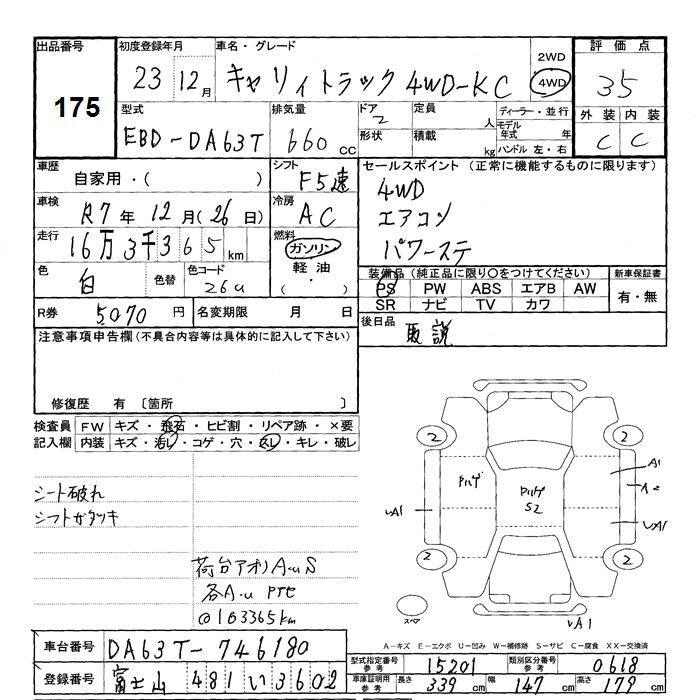 出品番号 初度登録年月 車名・グレード 評価点
175
23 12月 キャリイトラック 4WD-KC 2WD 4WD 35
型式 排気量 ドア 定員 ディーラー・並行 外装 内装
EBD-DA63T 660cc 2 人 モデル年式 年 C C
形状 積載 kg ハンドル 左・右
車歴 シフト セールスポイント (正常に機能するものに限ります)
自家用・( ) F5速 4WD
車検 冷房 エアコン
R7年12月(26日) AC パワーステ
走行 燃料
16万3千365km ガソリン
色 色替 色コード 軽油・ 装備品(純正品に限り○をつけてください) 新車保証書
白 26U ( ) PS PW ABS エアB AW 有・無
SR ナビ TV カワ
R券 5070円 名変期限 月 日 後日品 取説
注意事項申告欄(不具合内容等は具体的に記入して下さい)
修復歴 有 〔箇所 〕
検査員 FW キズ・飛石・ヒビ割・リペア跡・×要
記入欄 内装 キズ・汚レ・コゲ・穴・スレ・キレ・破レ
シート破れ
シフトガタツキ
荷台アオリAUS
各A・U PTE
@163365km
2 2
A1
ハゲ ハゲ
S2
UA1 UA1
2 2
スペア UA1
A-キズ E-エクボ U-凹み W-補修跡 S-サビ C-腐食 XX-交換済
車台番号 DA63T-746180 型式指定番号 参考 15201 類別区分番号 参考 0618
登録番号 富士山 481 い 3602 車庫証明用 参考 長さ 339cm 幅 147cm 高さ 179cm